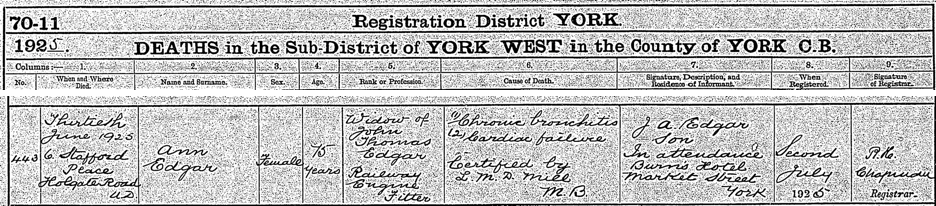 70-11
Registration District YORK.
1925. DEATHS in the Sub-District of YORK WEST in the County of YORK C.B.
Columns:— 1. 2. 3. 4. 5. 6. 7. 8. 9.
No. When and Where Died. Name and Surname. Sex. Age. Rank or Profession. Cause of Death. Signature, Description, and Residence of Informant. When Registered. Signature of Registrar.
443
Thirtieth
June 1925
6 Stafford
Place
Holgate Road
U.D.
Ann
Edgar
Female
75
years
Widow of
John
Thomas
Edgar
Railway
Engine
Fitter
(1) Chronic bronchitis
(2) Cardiac failure
Certified by
L. M. D. Mill
M.B.
J. A. Edgar
Son
In attendance
Burns Hotel
Market Street
York
Second
July
1925
R.H.
Registrar.